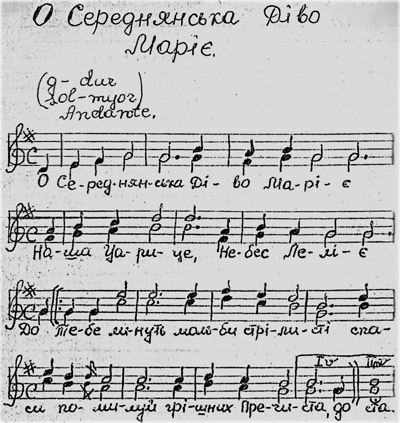 О Середнянська Діво
Маріє.
(g- dur
sol-myor)
Andante.
О Се-ред-нян-ська Ді- во Ма-рі- є
На-ша Ца-ри- це, Не-бес Ле-лі-є
До тебе ли-нуть мольби стрі-ли-сті спа-
си по-ми-луй грі-шних Пре-чи-ста, до ста.